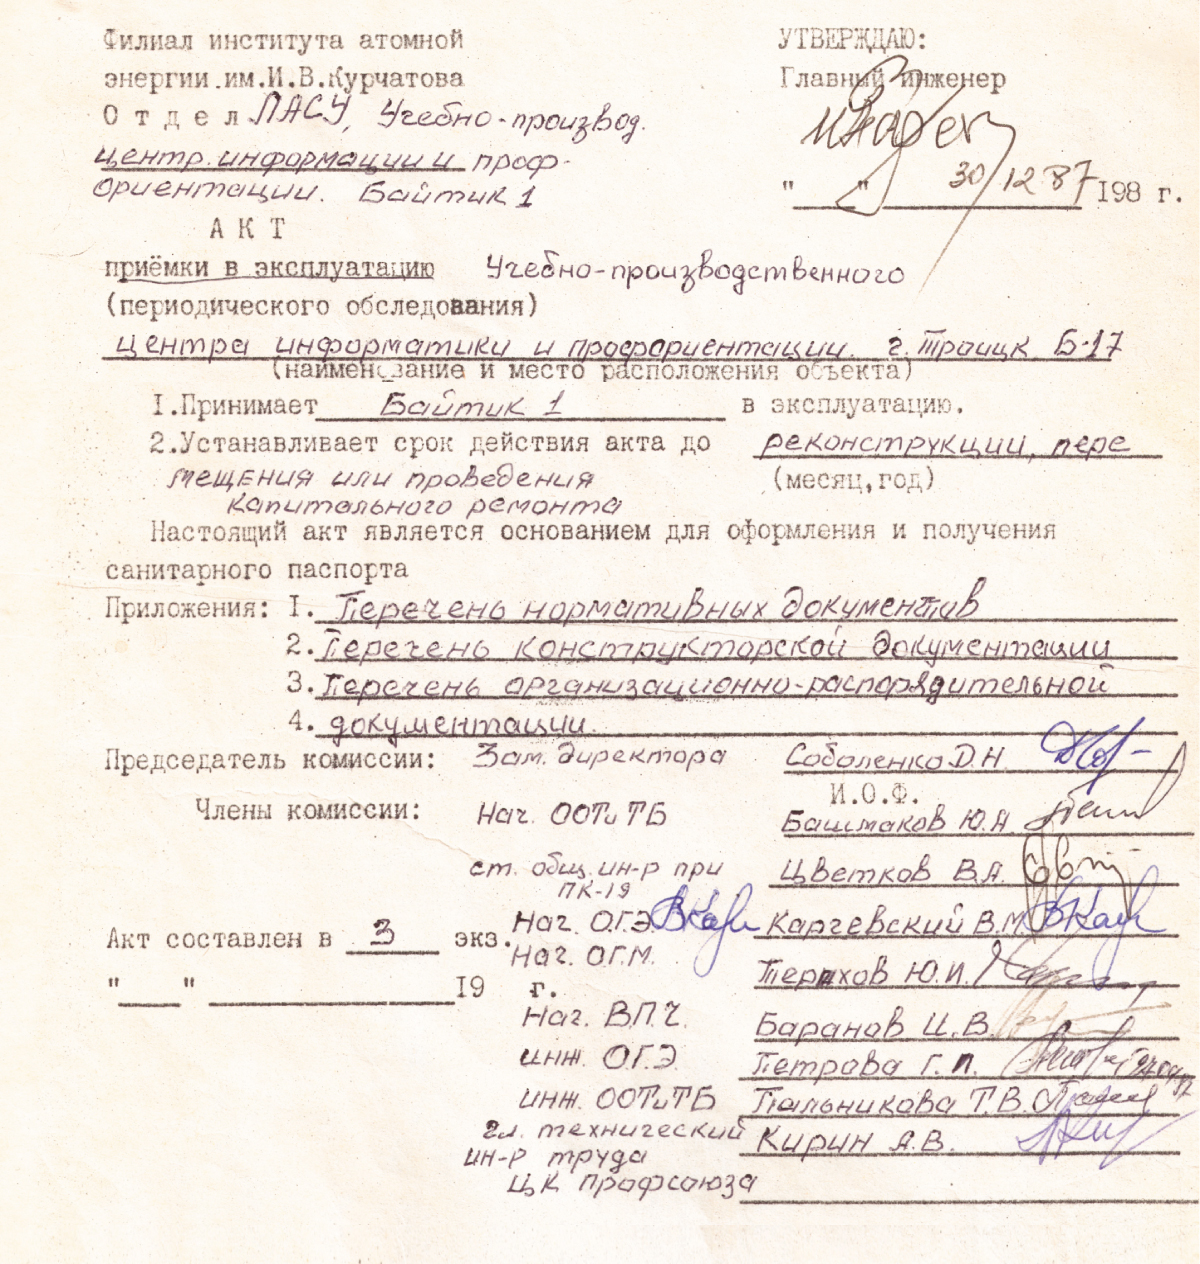 Филиал института атомной
энергии.им.И.В.Курчатова
Отдел ЛАСУ, Учебно-производ.
центр.информации и проф-
ориентации. Байтик 1
УТВЕРЖДАЮ:
Главный инженер
30/12 87
" " 198 г.
АКТ
приёмки в эксплуатацию Учебно-производственного
(периодического обследования)
центра информатики и профориентации. г. Троицк Б-17
(наименование и место расположения объекта)
1.Принимает Байтик 1 в эксплуатацию.
2.Устанавливает срок действия акта до реконструкции, пере
мещения или проведения (месяц,год)
капитального ремонта
Настоящий акт является основанием для оформления и получения
санитарного паспорта
Приложения: 1. Перечень нормативных документов
2. Перечень конструкторской документации
3. Перечень организационно-распорядительной
4. документации.
Председатель комиссии: Зам. директора Соболенко Д.Н.
И.О.Ф.
Члены комиссии: Нач. ООТиТБ Башмаков Ю.А.
ст. общ. ин-р при Цветков В.А.
ПК-19
Нач. ОГЭ Каргевский В.М.
Акт составлен в 3 экз.
Нач. ОГМ. Терехов Ю.И.
" " 19 г.
Нач. ВПЧ. Баранов И.В.
инж. ОГЭ. Петрова Г.П.
инж. ООТиТБ Пальникова Т.В.
гл. технический Кирин А.В.
ин-р труда
ЦК профсоюза